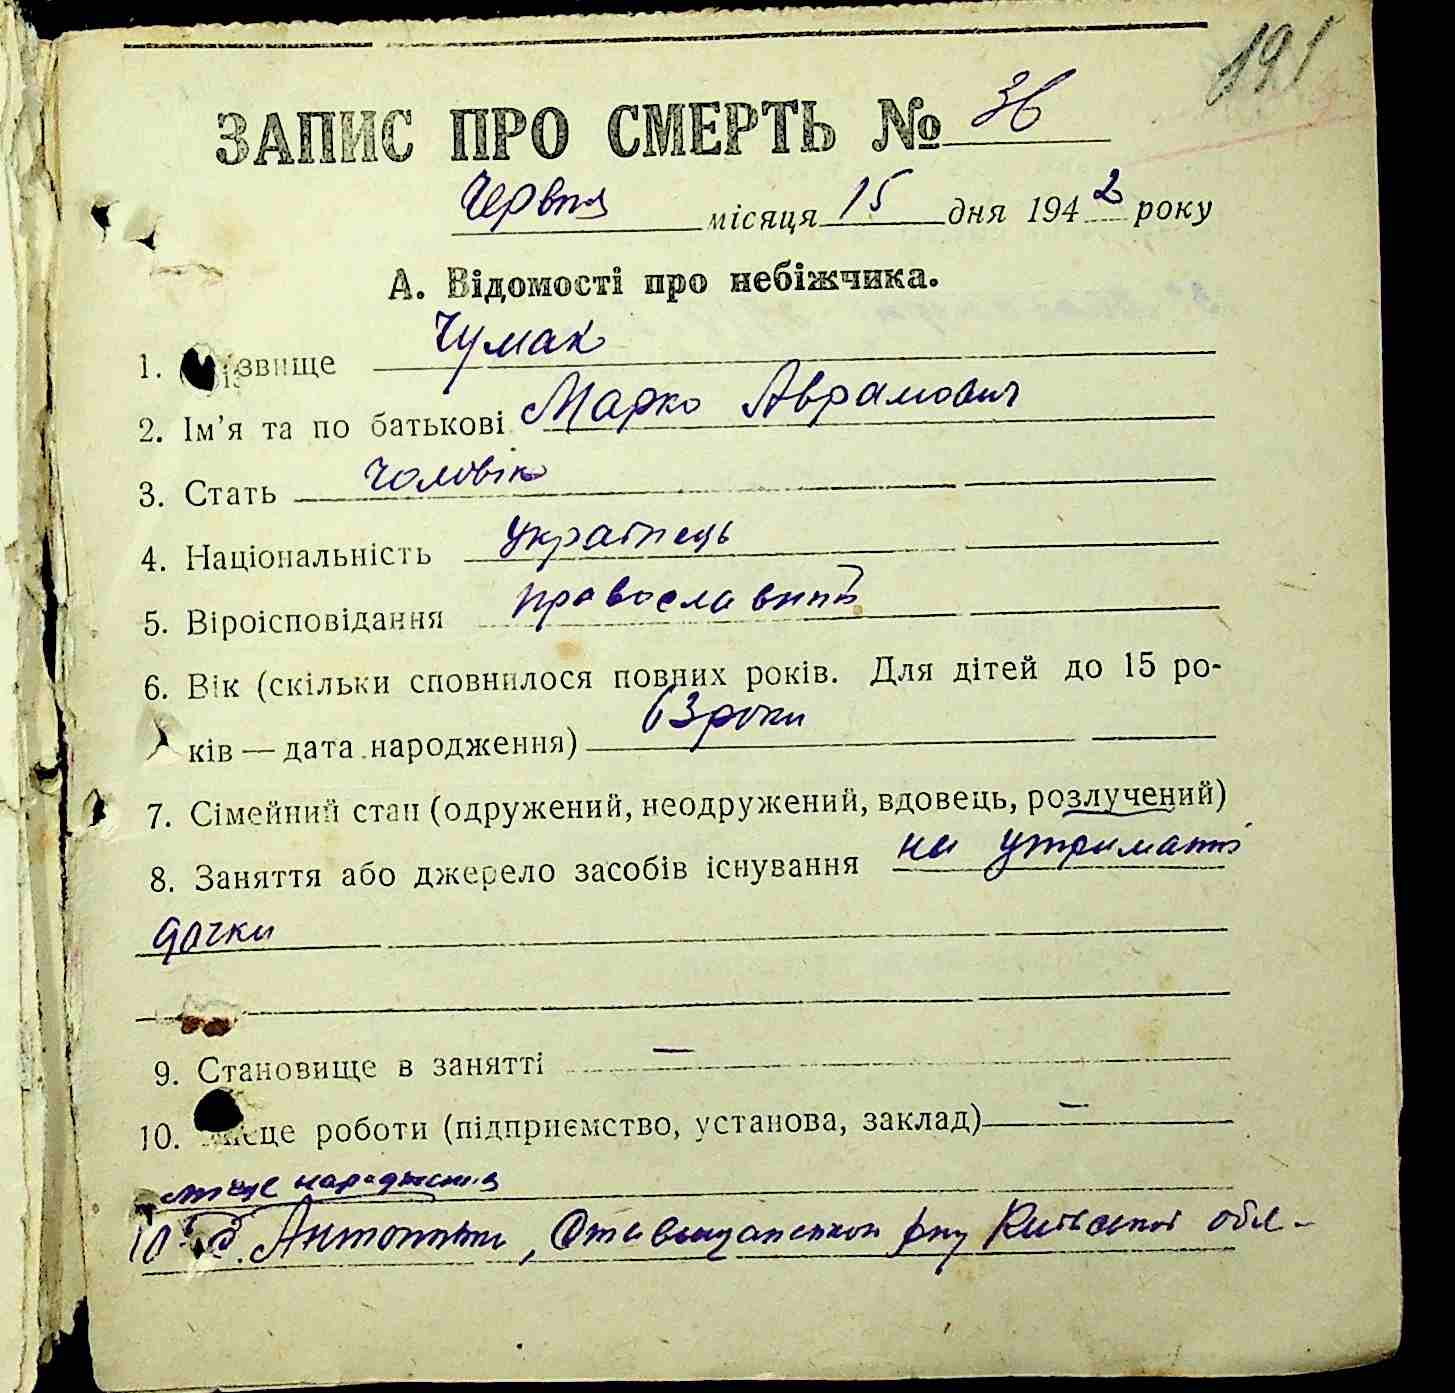 191
ЗАПИС ПРО СМЕРТЬ № 36
Червня місяця 15 дня 1942 року
А. Відомості про небіжчика.
1. ізвище Чумак
2. Ім'я та по батькові Марко Аврамович
3. Стать чоловік
4. Національність українець
5. Віроісповідання православний
6. Вік (скільки сповнилося повних років. Для дітей до 15 ро-
ків — дата народження) 63 роки
7. Сімейний стан (одружений, неодружений, вдовець, розлучений)
8. Заняття або джерело засобів існування на утриманні
дочки
9. Становище в занятті —
10. Місце роботи (підприємство, установа, заклад) —
місце народження
10 с. Ставищанської р-ну Київської обл-